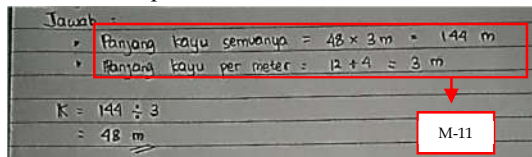 Jawab :
• Panjang kayu semuanya = 48 × 3 m = 144 m
• Panjang kayu per meter = 12 + 4 = 3 m
K = 144 ÷ 3
= 48 m
M-11